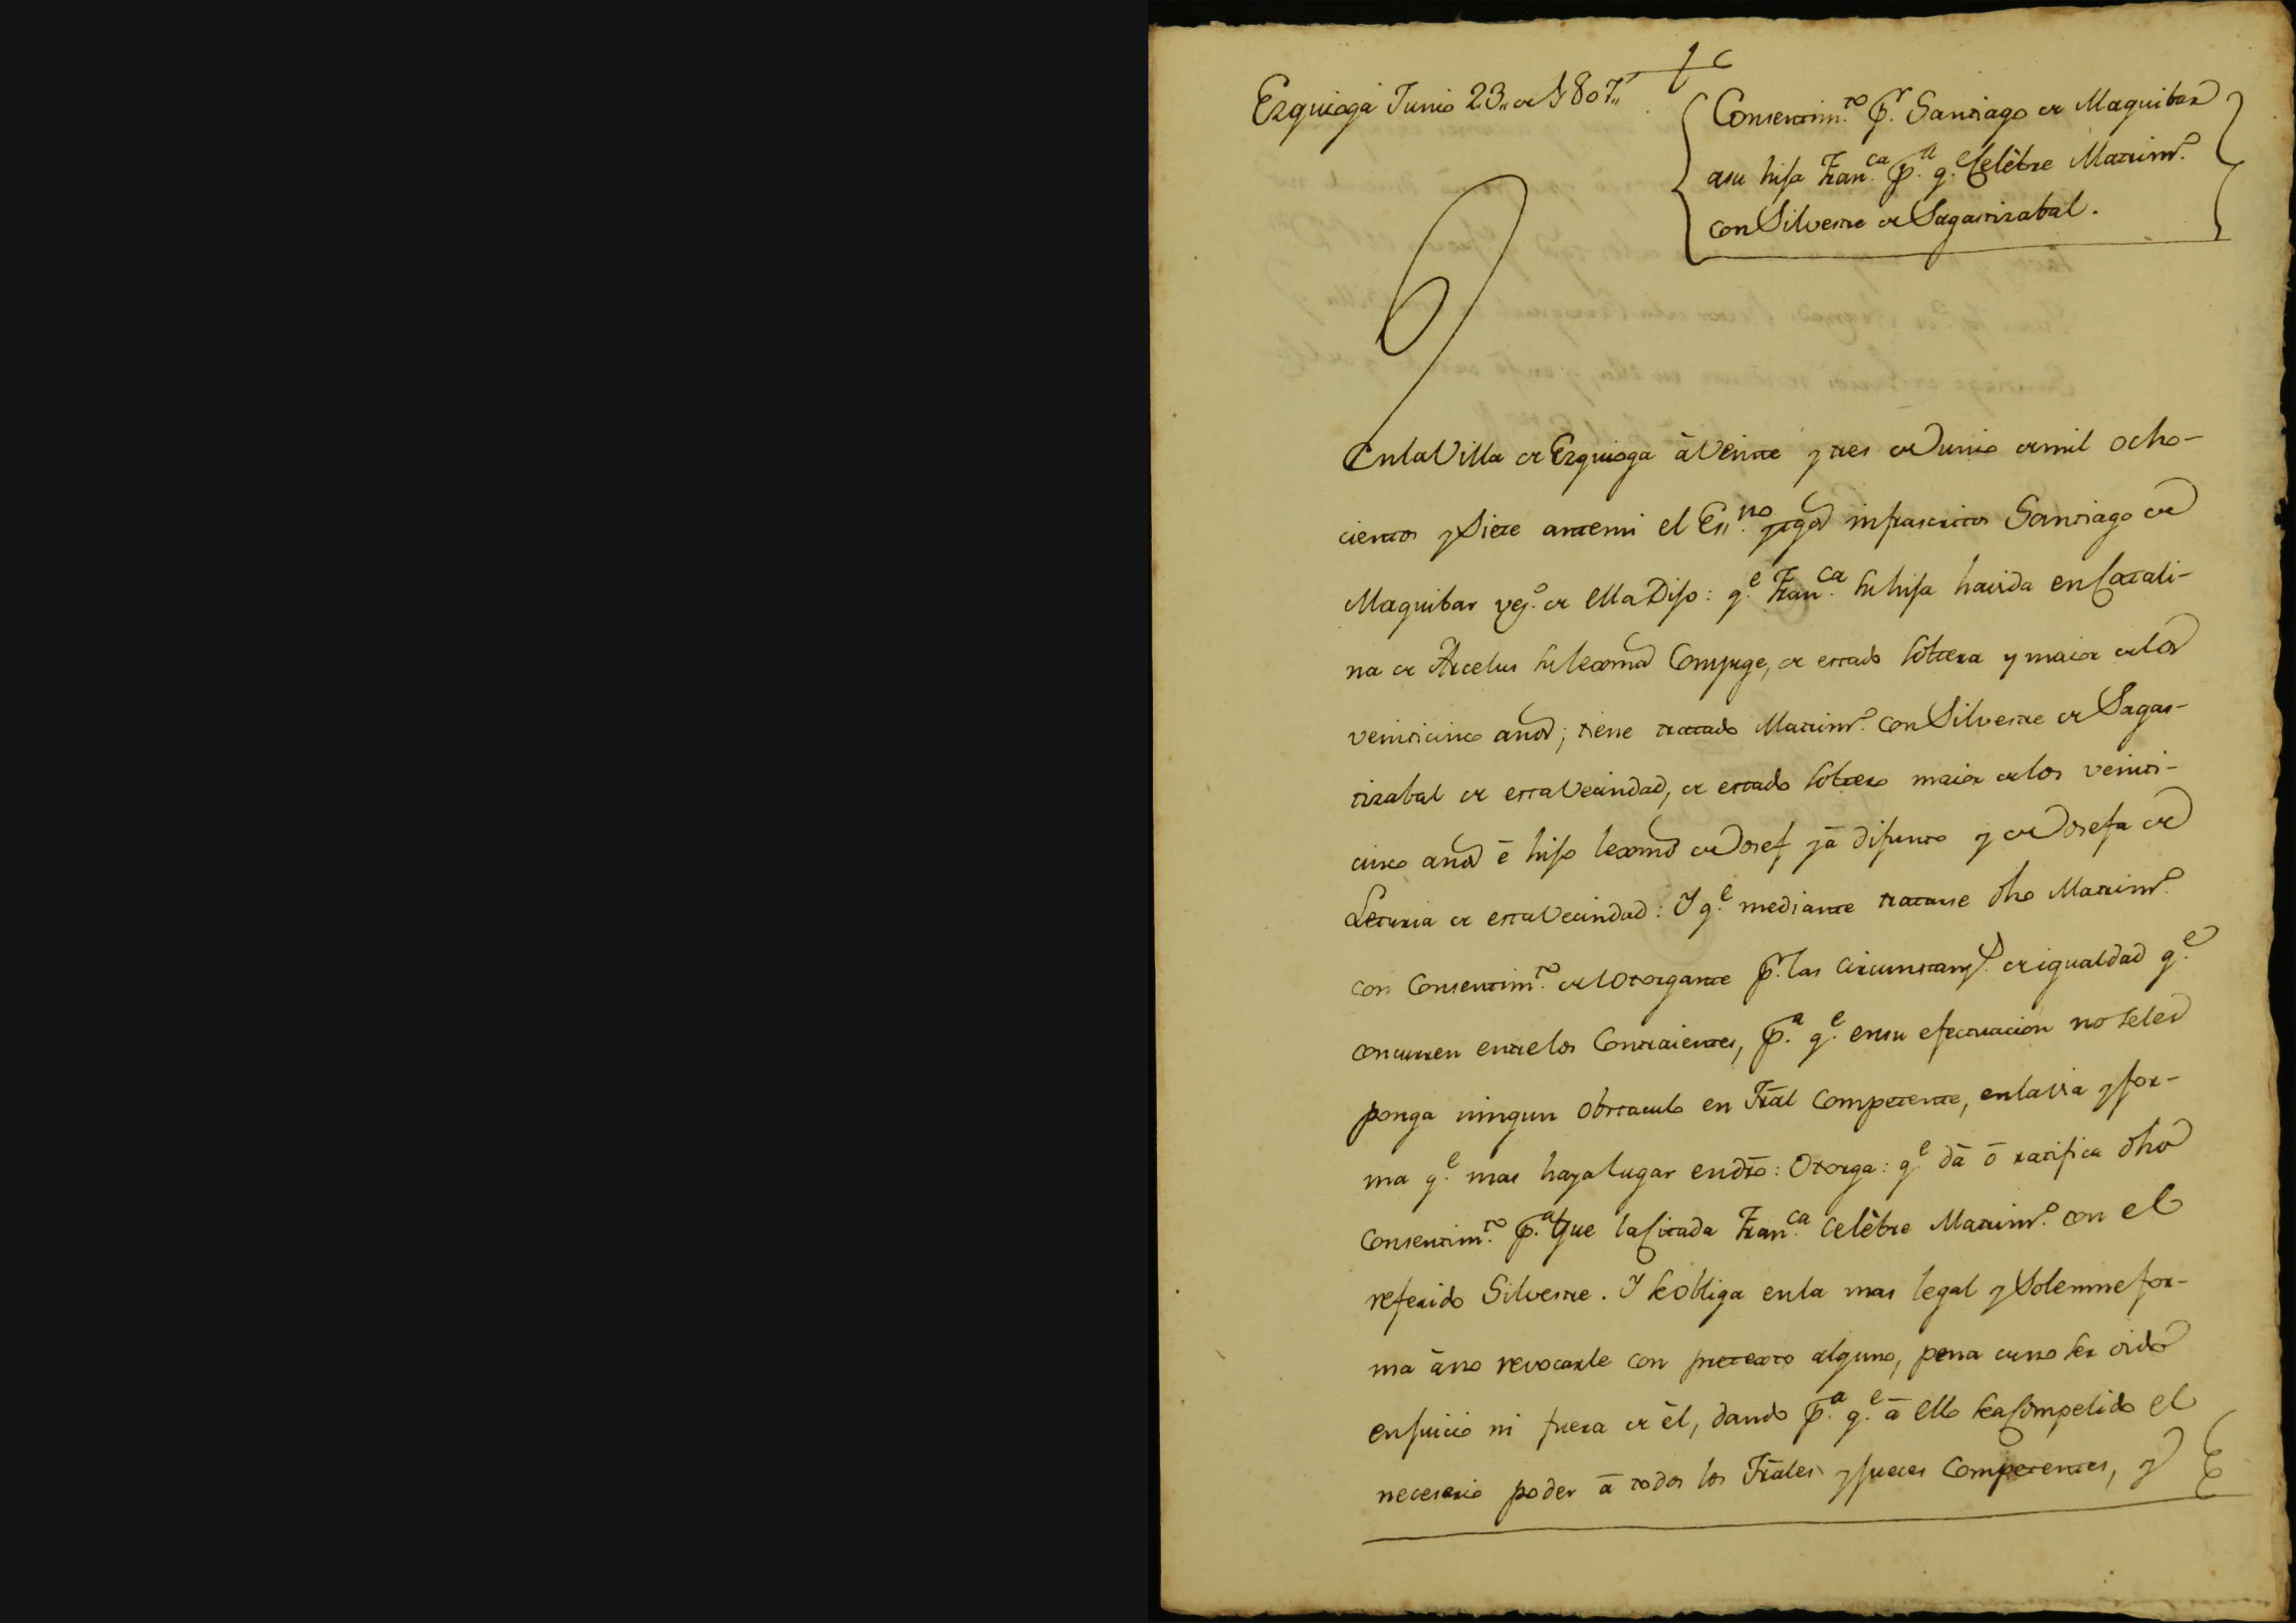 Ezquioga Junio 23,, de 1807,,
Consentim.to p.r Santiago de Maquibar
asu hija Fran.ca p.a q.e Celèbre Matrim.o
con Silvestre de Sagastizabal.
En la Villa de Ezquioga à Veinte y tres de Junio de mil ocho-
cientos y Siete antemi el Ess.no y tgos infrascritos Santiago de
Maquibar vez.o de ella Dijo: q.e Fran.ca su hija havida en Catali-
na de Arcelus su lexma Conjuge, de estado soltera y maior de los
veinticinco años; tiene tratado Matrim.o con Silvestre de Sagas-
tizabal de esta Vecindad, de estado soltero maior de los veinti-
cinco años è hijo lexmo de Josef yà difunto y de Josefa de
Leturia de esta Vecindad: Y q.e mediante tratarse dho Matrim.o
con Consentim.to del Otorgante p.r las circunstanz.s de igualdad q.e
concurren entre los Contraientes, p.a q.e en su efectuacion no seles
ponga ningun Obstaculo en Tral Competente, en la via y for-
ma q.e mas haya lugar en dro: Otorga: q.e dà ò ratifica dho
Consentim.to p.a que la Citada Fran.ca Celèbre Matrim.o con el
referido Silvestre. Y se obliga en la mas legal y Solemne for-
ma àno revocarle con pretexto alguno, pena de no ser oido
en juicio ni fuera de èl, dando p.a q.e à ello sea Compelido el
necesario poder à todos los Trales y jueces Competentes, y